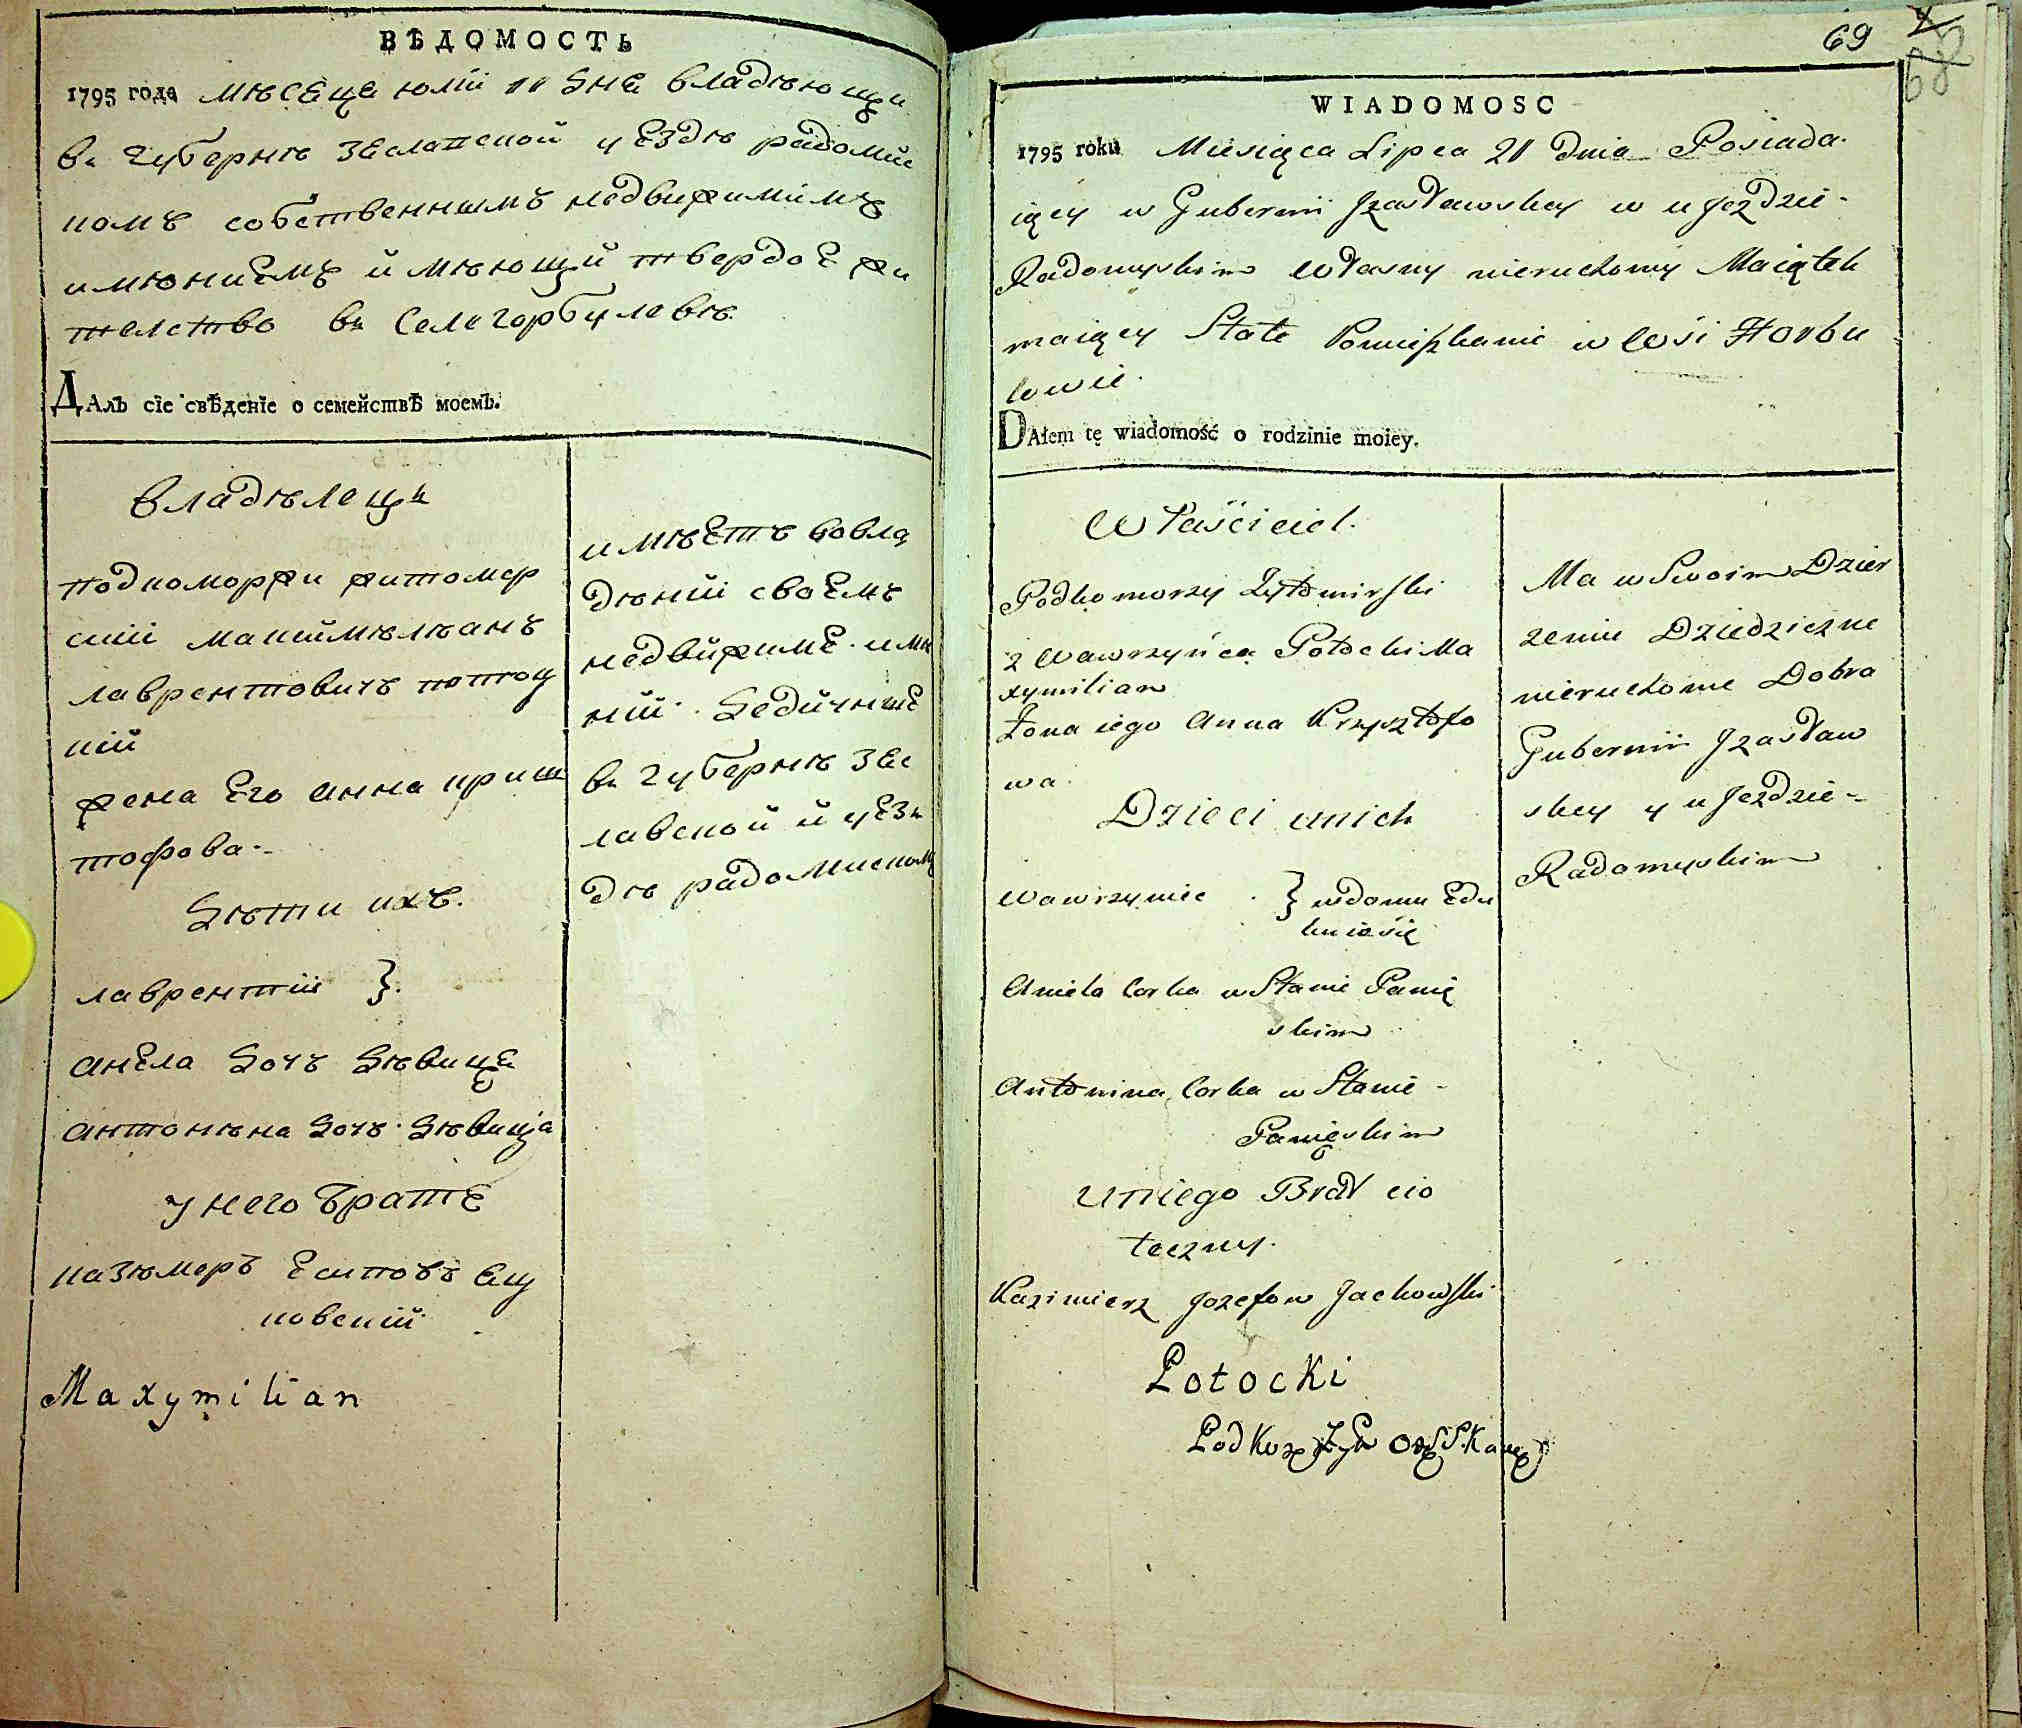 ВѢДОМОСТЬ
1795 года мѣсеца юлій 11 дня владѣющи
въ губерніѣ Заславской уездѣ радомис
комъ собственнымъ недвижимимъ
имѣниемъ и мѣющій твердое жи
телство въ Селе горбулевѣ.
ДАлъ сїе свѣденїе о семействѣ моемъ.
владѣлецъ
подкоморжи житомер
скій макъсимѣлѣанъ
лаврентовичъ потоц
кій
жена Его анна криш
тофова.
дѣти ихъ.
лаврентій }.
анела дочъ дѣвица
антонѣна дочъ дѣвица
у него братъ
казѣмеръ
ковский
Maxymilian
имѣетъ вовла
дѣній своемъ
недвижиме имѣ
ній дедичные
въ губерніѣ Зас
лавской и уез
дѣ радомиском
69
68
WIADOMOSC
1795 roku Miesiąca Lipca 21 dnia Posiada-
iący w Gubernii Jzasławskey w ujeździe-
Radomyskim własny nieruchomy Maiątek
maiący Stałe Pomieszkanie w wsi Horbu
lowie.
DAłem tę wiadomość o rodzinie moiey.
Właściciel.
Podkomorzy Żytomirski
z Wawrzyńca Potocki Ma
xymilian
Żona iego Anna Krzysztofo
wa.
Dzieci unich
Wawrzyniec } w domu Edu
kuie się
Aniela Corka w Stanie Panię
skim
Antonina Corka w Stanie-
Panięskim
U niego Brat cio
teczny.
Kazimierz Jozefow Jackowski
Potocki
Ma w Swoim Dzier
zeniu Dziedziczne
nieruchome Dobra
Gubernii Jzasław
skey y ujeździe-
Radomyskim